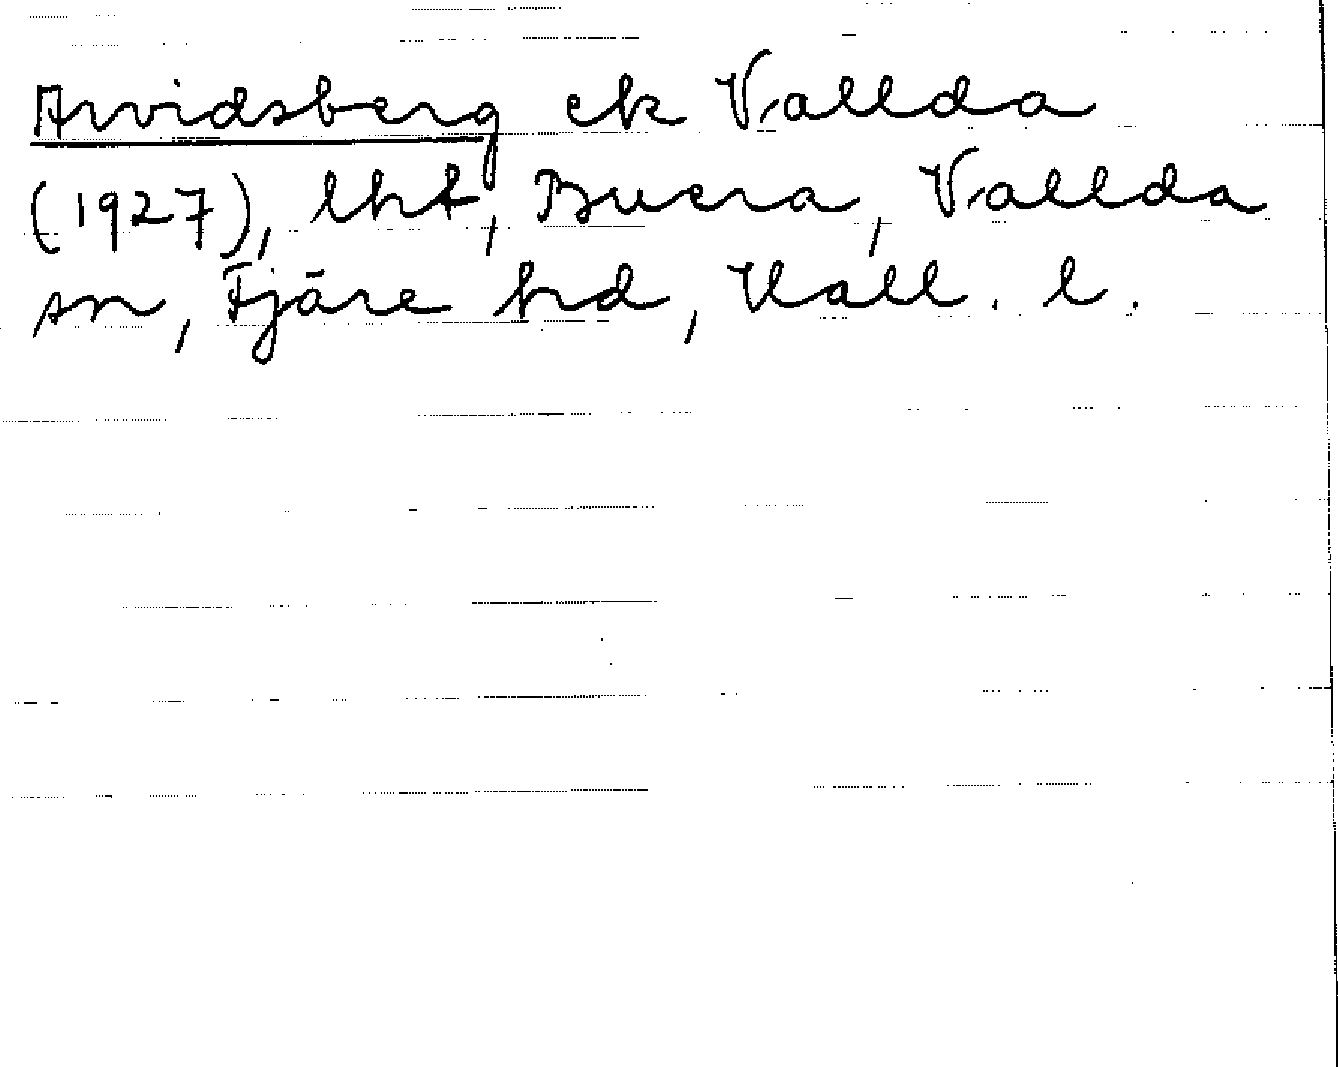 Arvidsberg ek Vallda
(1927), lht, Buera, Vallda
sn, Fjäre hd, Hall. l.